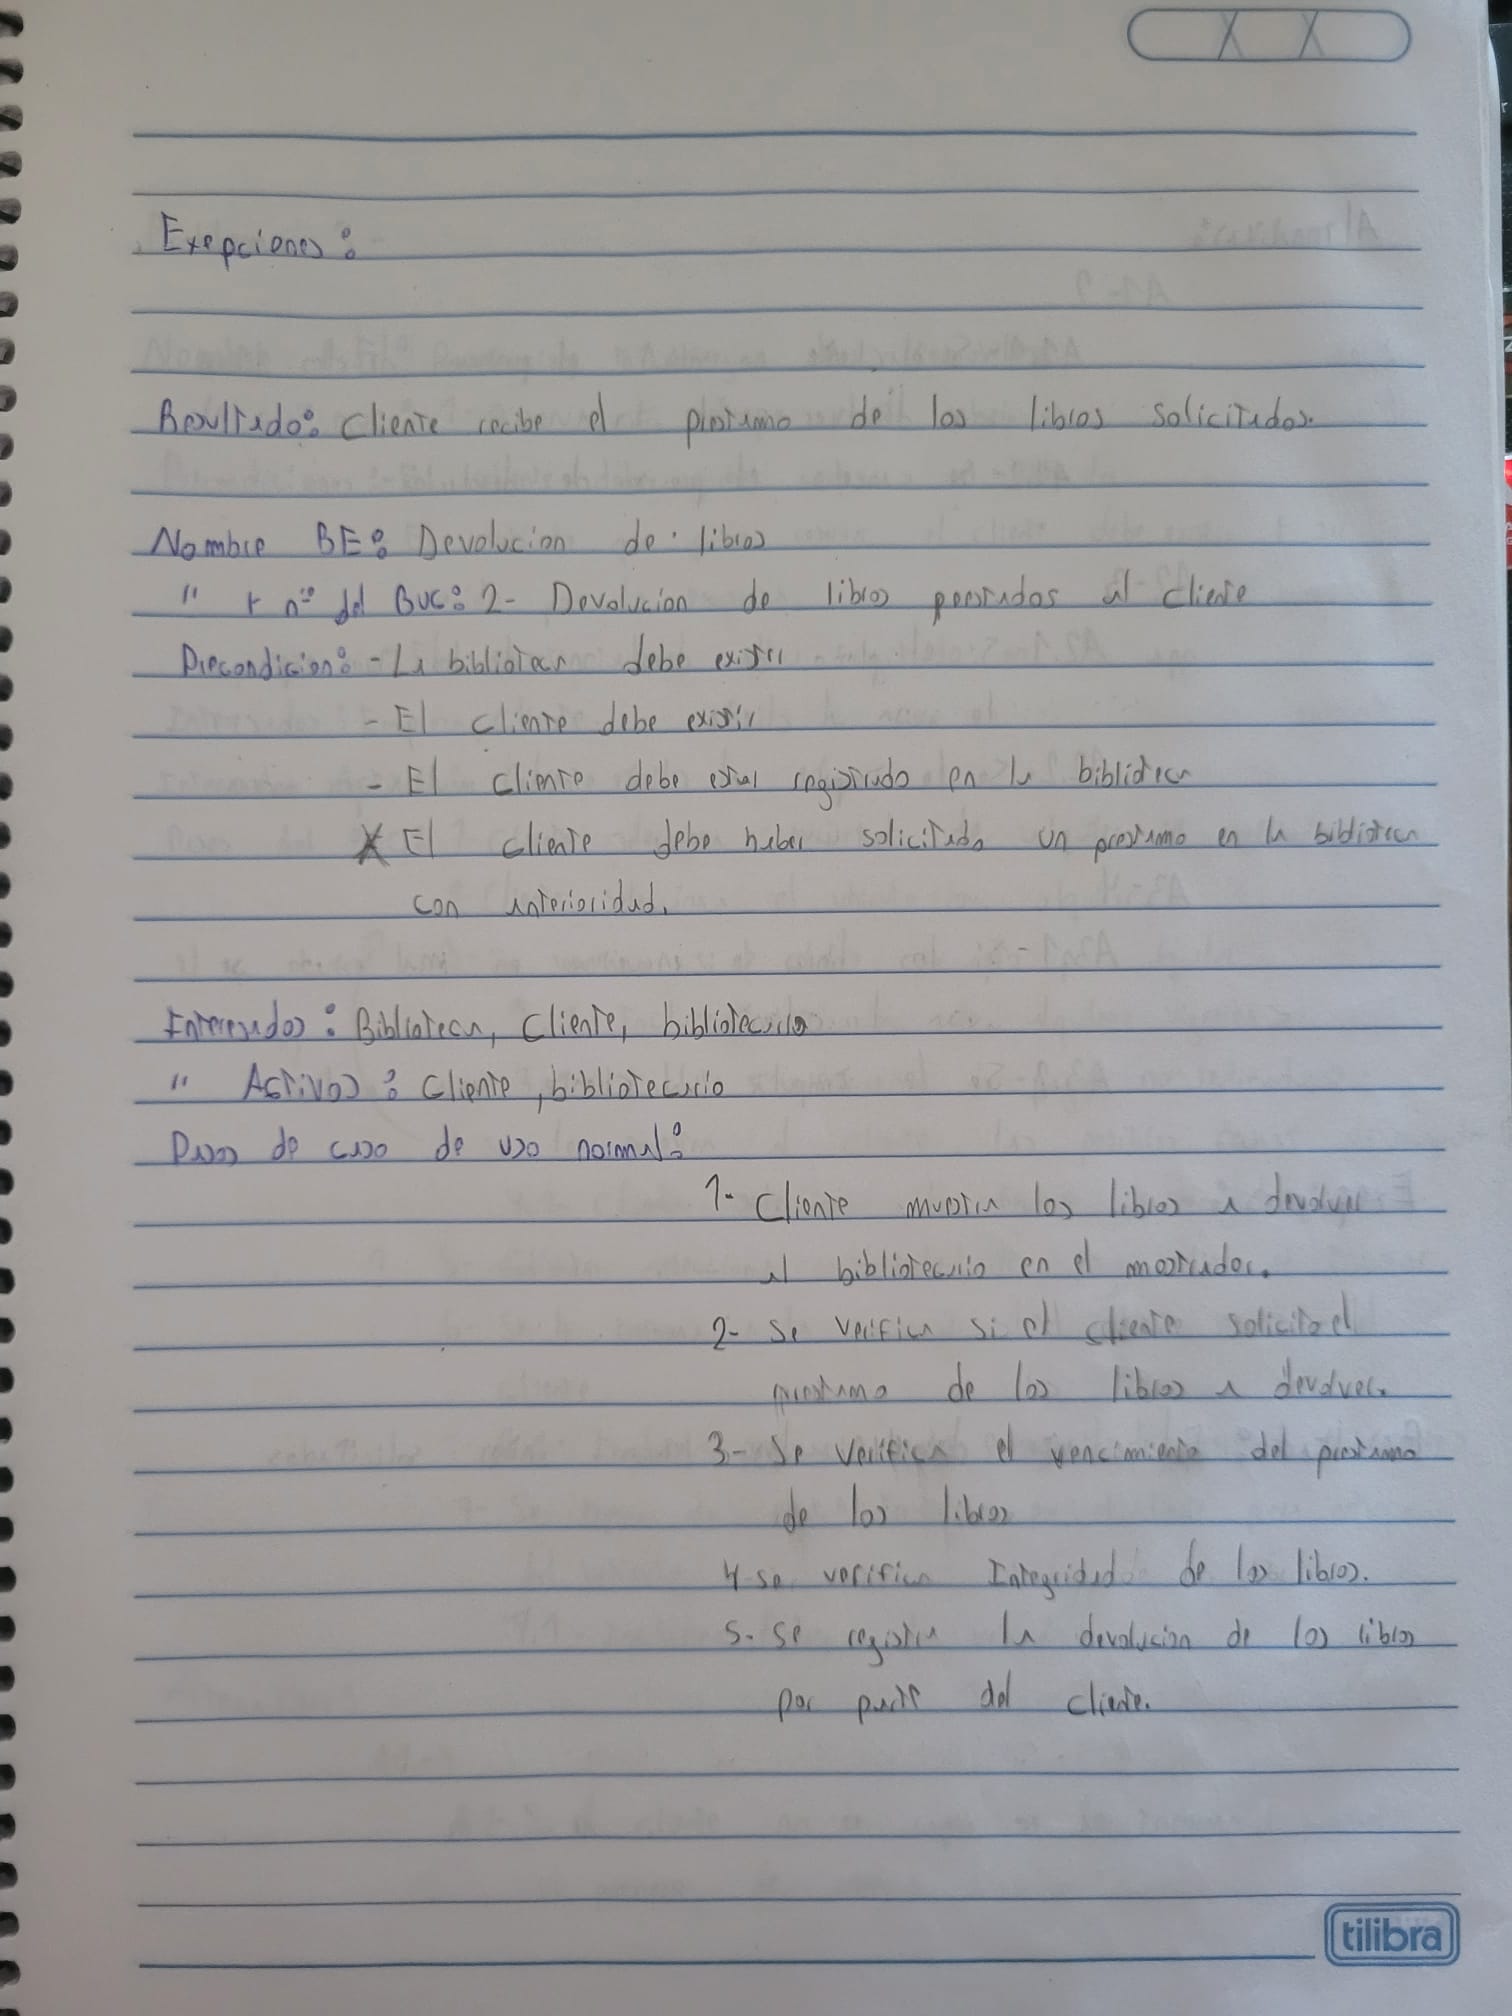 X X
Exepciones:
Resultado: Cliente recibe el prestamo de los libros solicitados.
Nombre BE: Devolucion de libros
" + nº del BUC: 2- Devolucion de libros prestados al cliente
Precondicion: - La biblioteca debe existir
- El cliente debe existir
- El cliente debe estar registrado en la biblioteca
X El cliente debe haber solicitado un prestamo en la biblioteca
con anterioridad.
Interesados: Biblioteca, Cliente, bibliotecario
" Activos: Cliente, bibliotecario
Pasos de caso de uso normal:
1- Cliente muestra los libros a devolver
al bibliotecario en el mostrador.
2- Se verifica si el cliente solicito el
prestamo de los libros a devolver.
3- Se verifica el vencimiento del prestamo
de los libros
4 se verifica Integridad de los libros.
5- Se registra la devolucion de los libros
por parte del cliente.
tilibra